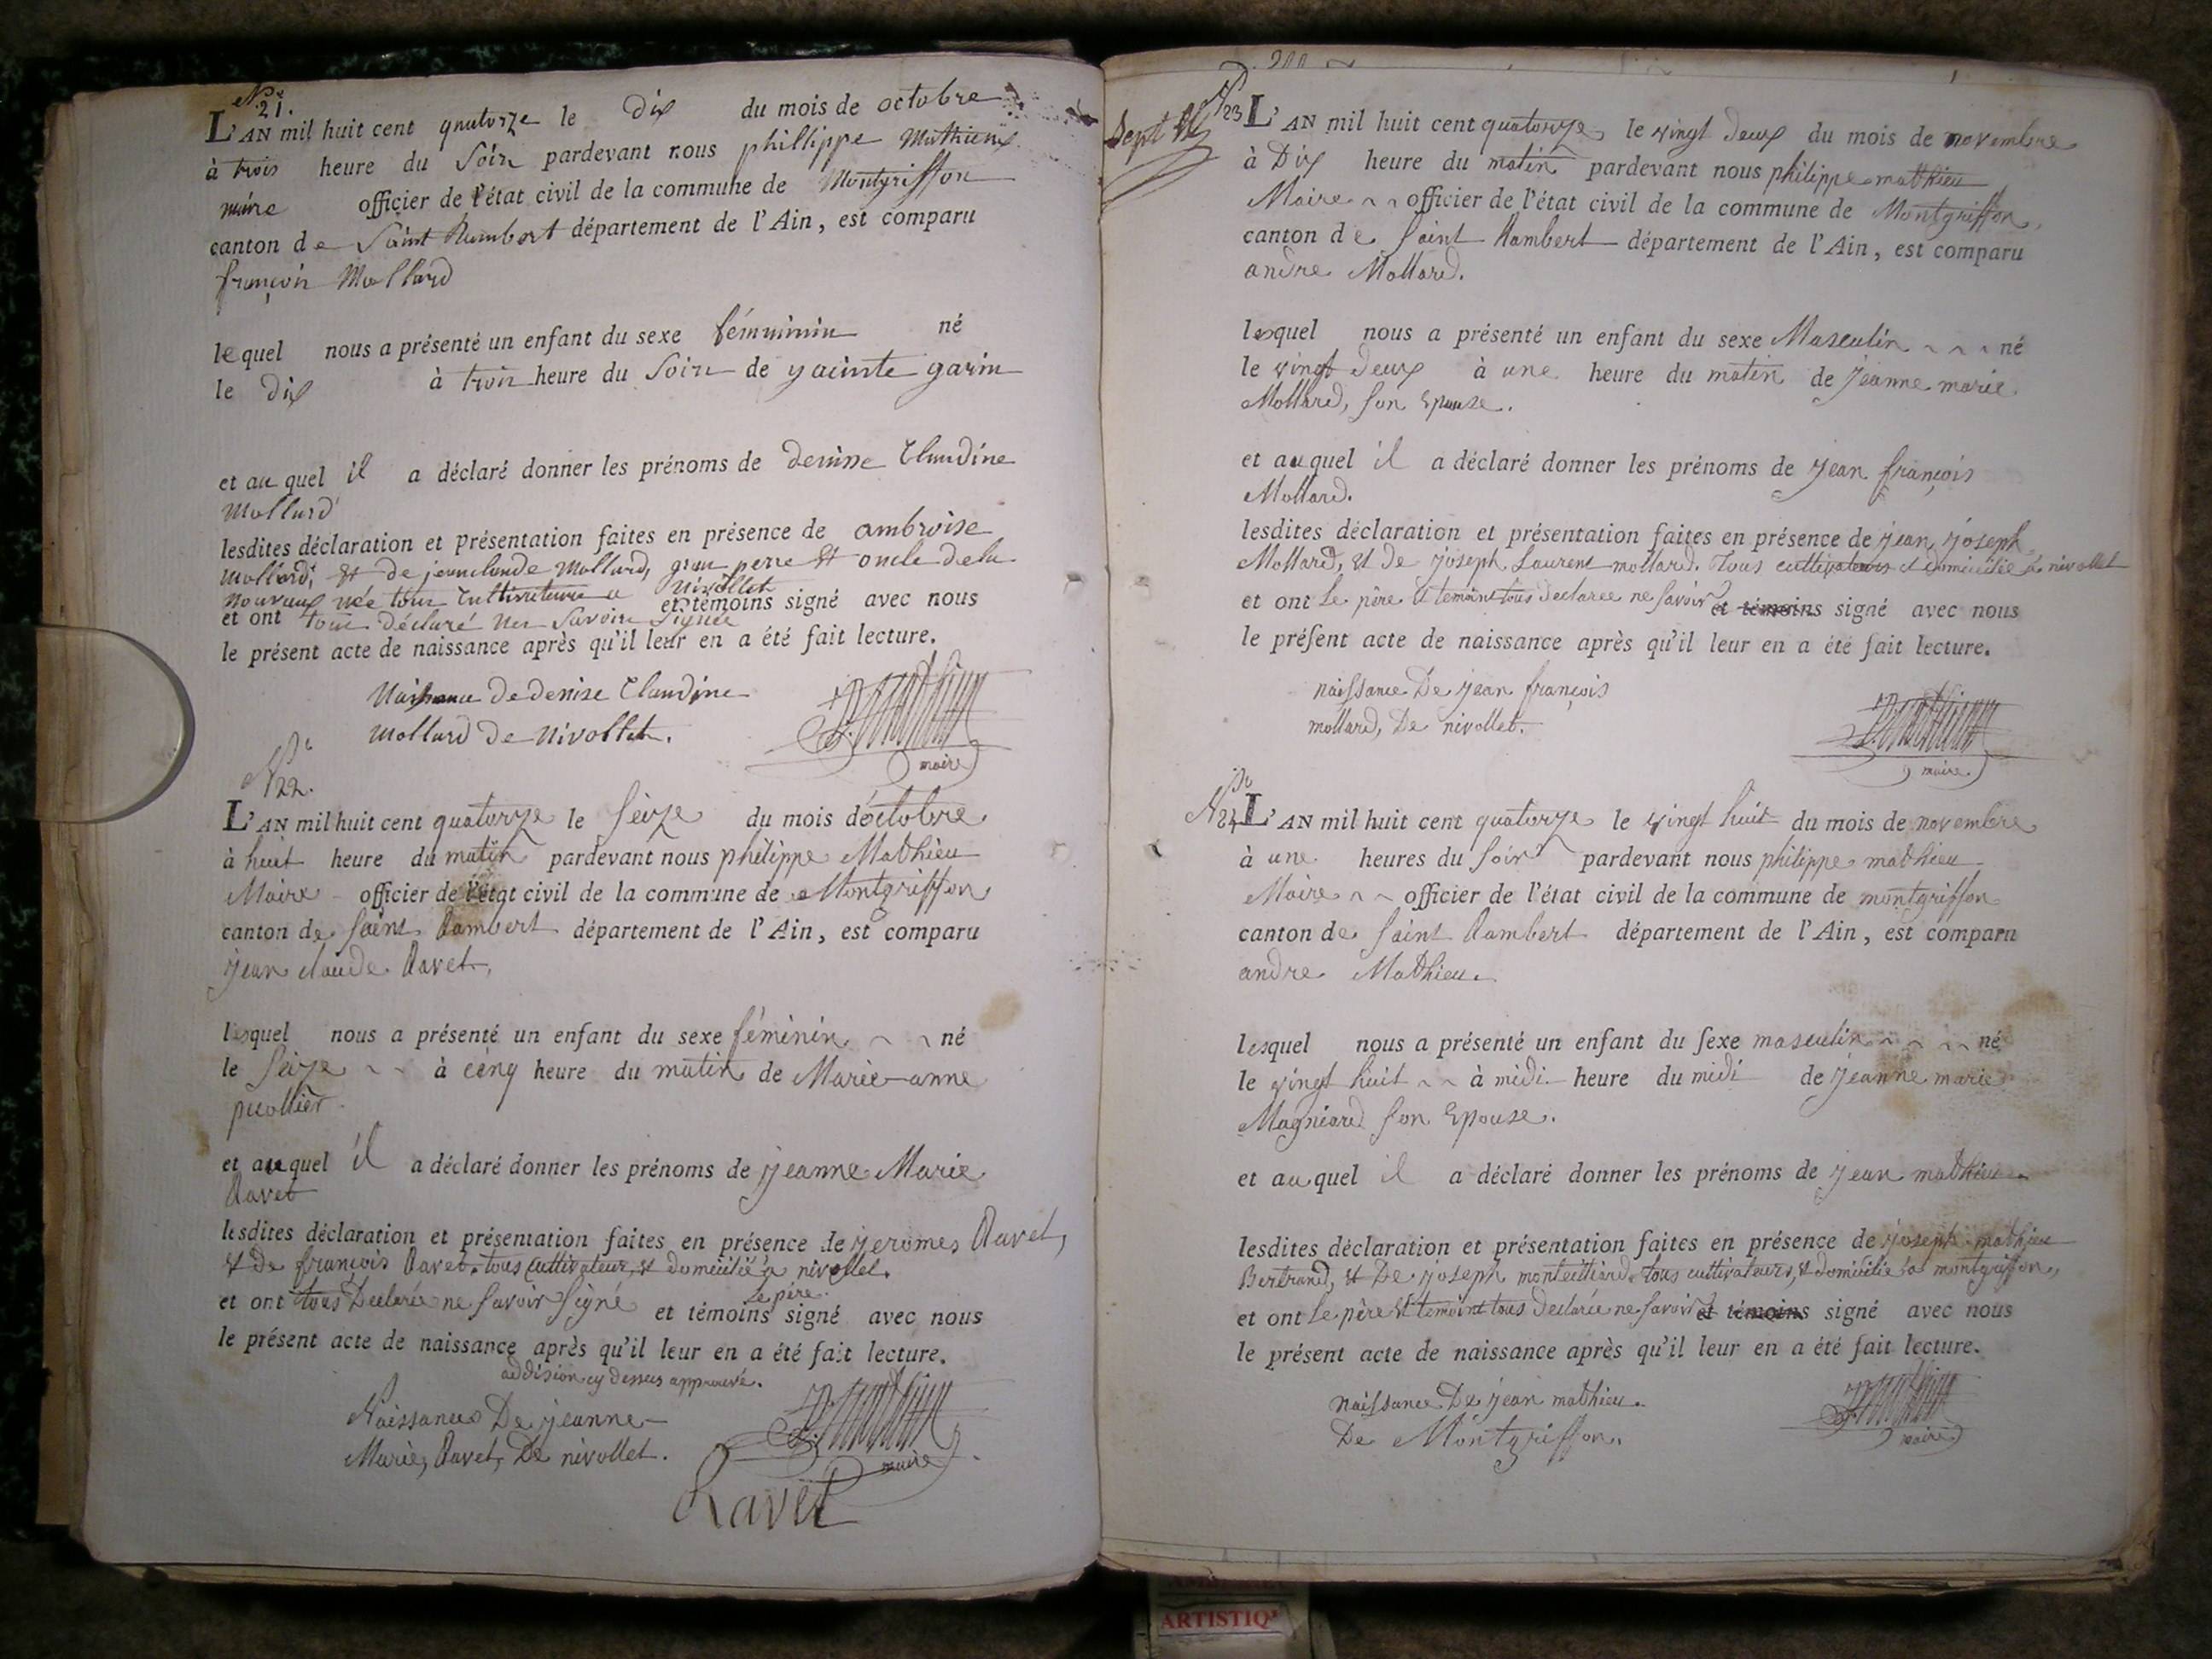 N.° 21.
L'AN mil huit cent quatorze le dix du mois de octobre
à trois heure du soir pardevant nous phillippe Mathieu
maire officier de l'état civil de la commune de Montgriffon
canton de Saint Rambert département de l'Ain, est comparu
françois Mollard
lequel nous a présenté un enfant du sexe féminimin né
le dix à trois heure du soir de yacinte garin
et au quel il a déclaré donner les prénoms de denise Claudine
Mollard
lesdites déclaration et présentation faites en présence de ambroise
Mollard, et de jean claude Mollard, gran pere et oncle de la
nouveaux née tous Cultivateurs a Nivollet
et ont tous déclaré ne savoir signée et témoins signé avec nous
le présent acte de naissance après qu'il leur en a été fait lecture.
Naissance de denise Claudine
Mollard de Nivollet.
maire
N.° 22.
L'AN mil huit cent quatorze le seize du mois d'octobre
à huit heure du matin pardevant nous philippe Mathieu
Maire officier de l'état civil de la commune de Montgriffon
canton de saint Rambert département de l'Ain, est comparu
jean claude Ravet,
lesquel nous a présenté un enfant du sexe féminin né
le seize à cinq heure du matin de Marie-anne
et auquel il a déclaré donner les prénoms de jeanne Marie
Ravet
lesdites déclaration et présentation faites en présence de jeromes Ravet,
et de françois Ravet. tous cultivateur, et domicilié a nivollet.
et ont tous Declarée ne savoir signé et témoins le père signé avec nous
le présent acte de naissance après qu'il leur en a été fait lecture.
addision cy dessus approuvé.
Naissances De jeanne
Marie, Ravet, De nivollet.
maire
Ravet
200
Sept
N.° 23
L'AN mil huit cent quatorze le vingt deux du mois de novembre
à Dix heure du matin pardevant nous philippe mathieu
Maire officier de l'état civil de la commune de Montgriffon,
canton de saint Rambert département de l'Ain, est comparu
andre Mollard.
lesquel nous a présenté un enfant du sexe Masculin né
le vingt deux à une heure du matin de jeanne marie
Mollard, son Epouse.
et auquel il a déclaré donner les prénoms de jean françois
Mollard.
lesdites déclaration et présentation faites en présence de jean joseph
Mollard, et de joseph Laurent mollard. Tous cultivateurs et domicilié a nivollet
et ont Le père et temoins tous declarée ne savoir et témoins signé avec nous
le présent acte de naissance après qu'il leur en a été fait lecture.
naissance De jean françois
mollard, De nivollet.
maire.
N.° 24
L'AN mil huit cent quatorze le vingt huit du mois de novembre
à une heures du soir pardevant nous philippe mathieu
Maire officier de l'état civil de la commune de montgriffon
canton de saint Rambert département de l'Ain, est comparu
andre Mathieu.
lesquel nous a présenté un enfant du sexe masculin né
le vingt huit à midi heure du midi de jeanne marie
Magniard son Epouse.
et auquel il a déclaré donner les prénoms de jean mathieu
lesdites déclaration et présentation faites en présence de joseph mathieu
Bertrand, et De joseph tous cultivateurs, et domicilié a montgriffon,
et ont Le père et temoins tous declarée ne savoir et témoins signé avec nous
le présent acte de naissance après qu'il leur en a été fait lecture.
naissance De jean mathieu.
De Montgriffon.
maire
ARTISTIQ